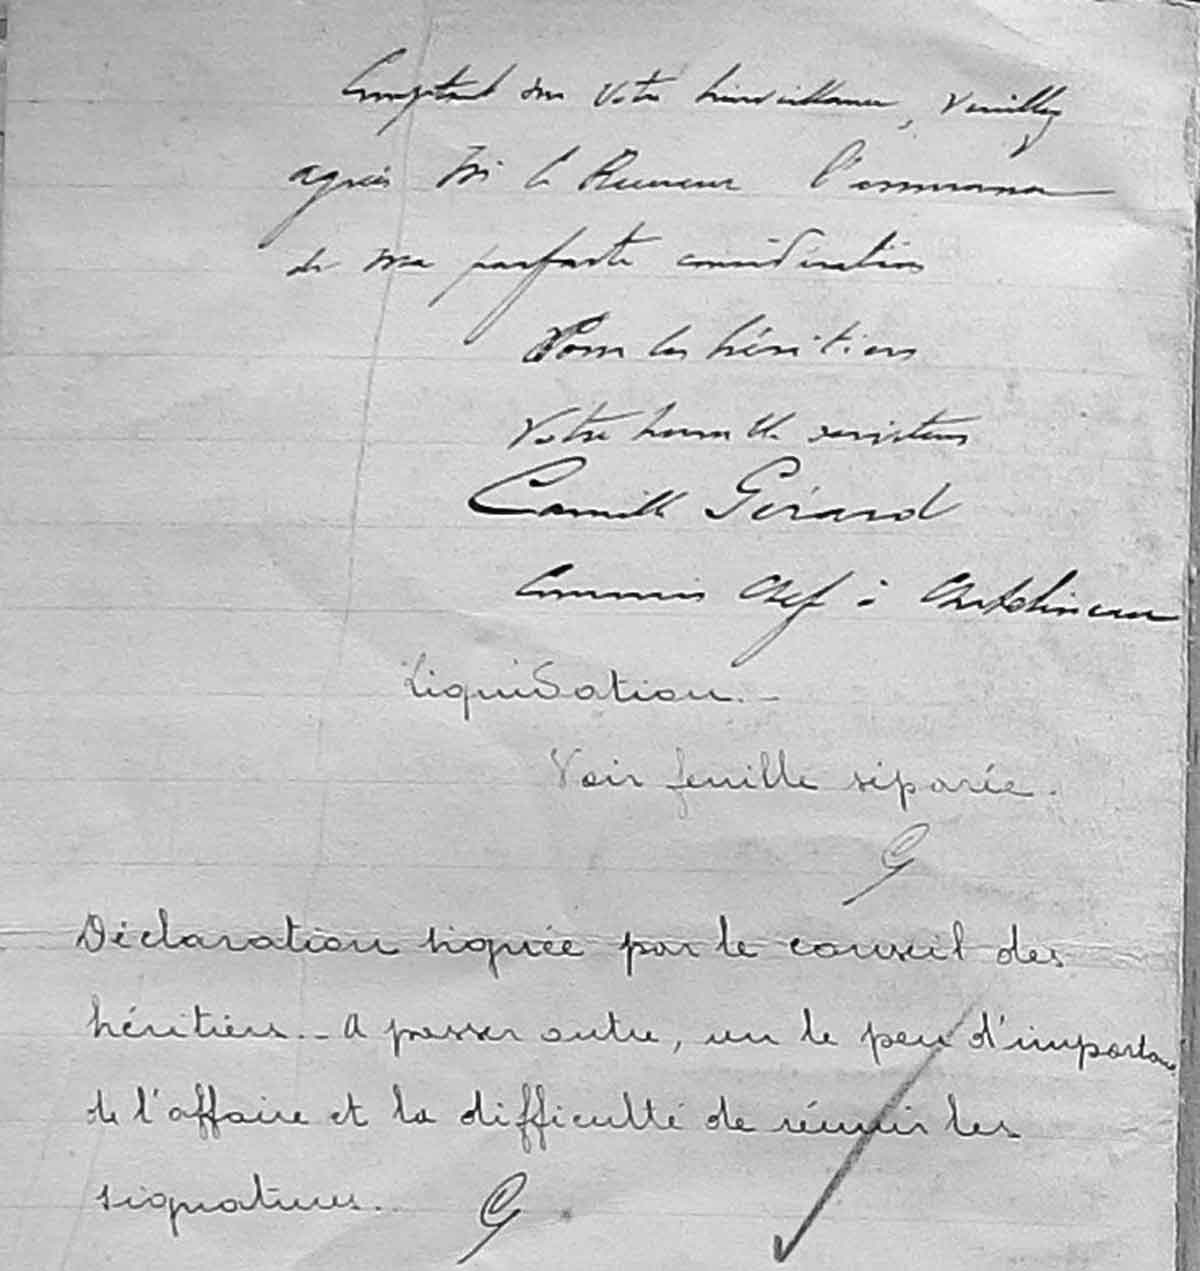 Comptant sur votre bienveillance, veuillez
agréer Mr le Receveur l'assurance
de ma parfaite considération
Pour les héritiers
Votre humble serviteur
Camille Gérard
Commis Chef à Châtelineau
Liquidation. -
Voir feuille séparée.
G
Déclaration signée par le conseil des
héritiers. - A passer outre, vu le peu d'importance
de l'affaire et la difficulté de réunir les
signatures.
G